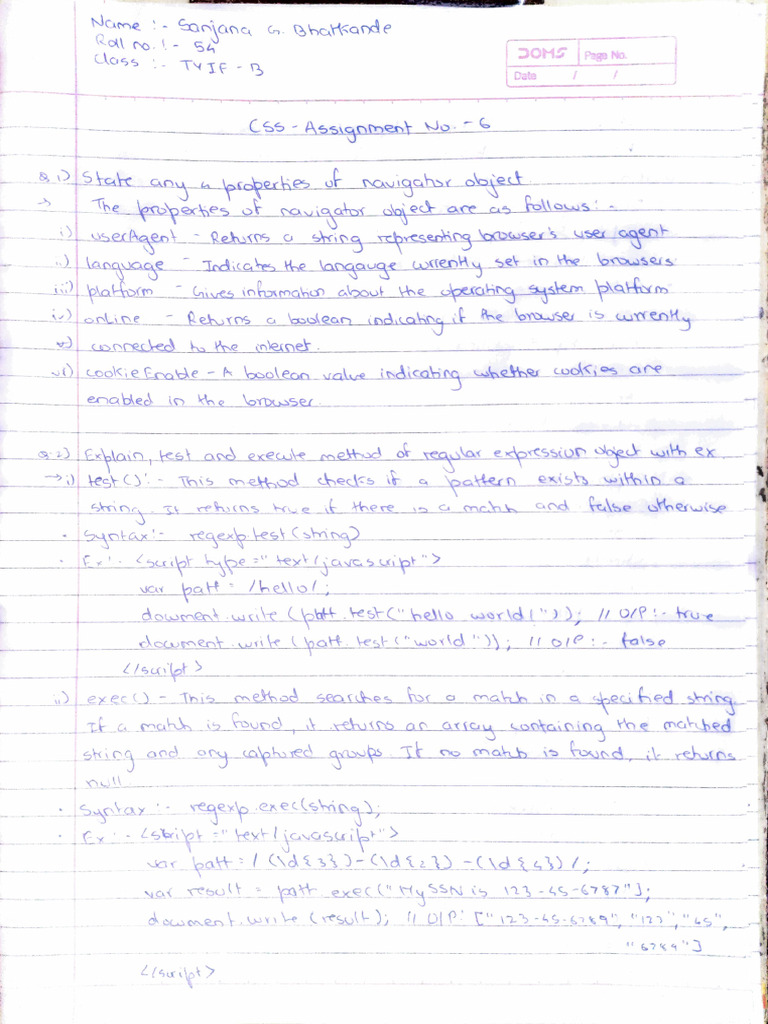 Name :- Sanjana G. Bhatkande
Roll no. :- 54
Class :- TYIF - B
DOMS Page No.
Date / /
CSS - Assignment No. - 6
Q.1) State any 4 properties of navigator object
→ The properties of navigator object are as follows :-
i) userAgent - Returns a string representing browser's user agent
ii) language - Indicates the langauge currently set in the browsers
iii) platform - Gives information about the operating system platform
iv) online - Returns a boolean indicating if the browser is currently
v) connected to the internet.
vi) cookieEnable - A boolean value indicating whether cookies are
enabled in the browser.
Q.2) Explain, test and execute method of regular expression object with ex
→ i) test() :- This method checks if a pattern exists within a
string. It returns true if there is a match and false otherwise
• Syntax :- regexp.test(string)
• Ex :- <script type="text/javascript">
var patt = /hello/;
document.write (patt.test("hello world!")); // O/P :- true
document.write (patt.test("world")); // O/P :- false
</script>
ii) exec() - This method searches for a match in a specified string
If a match is found, it returns an array containing the matched
string and any captured groups. If no match is found, it returns
null
• Syntax :- regexp.exec(string);
• Ex :- <script ="text/javascript">
var patt = /(\d{3})-(\d{2})-(\d{4})/;
var result = patt.exec("My SSN is 123-45-6787"];
document.write (result); // O/P: ["123-45-6789", "123", "45",
"6789"]
</script>